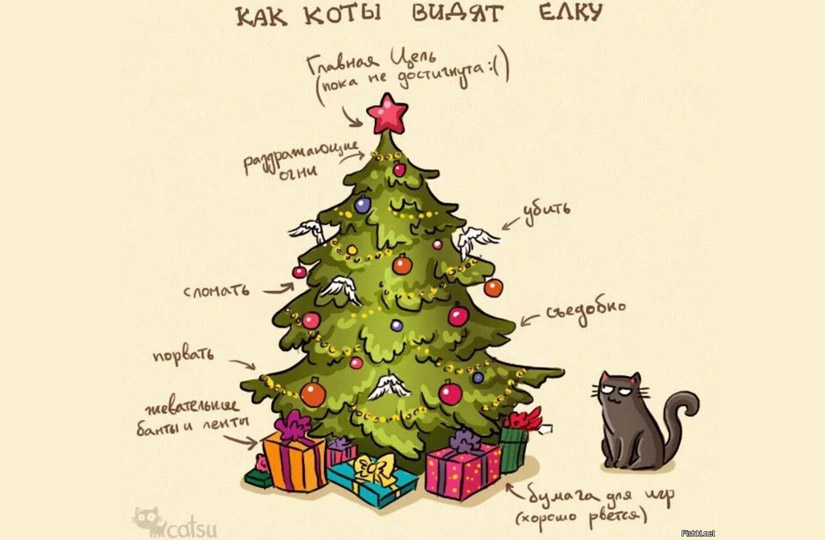 КАК КОТЫ ВИДЯТ ЕЛКУ
Главная Цель
(пока не достигнута :( )
раздражающие
огни
убить
сломать
съедобно
порвать
жевательные
банты и ленты
бумага для игр
(хорошо рвется)
catsu
Fishki.net